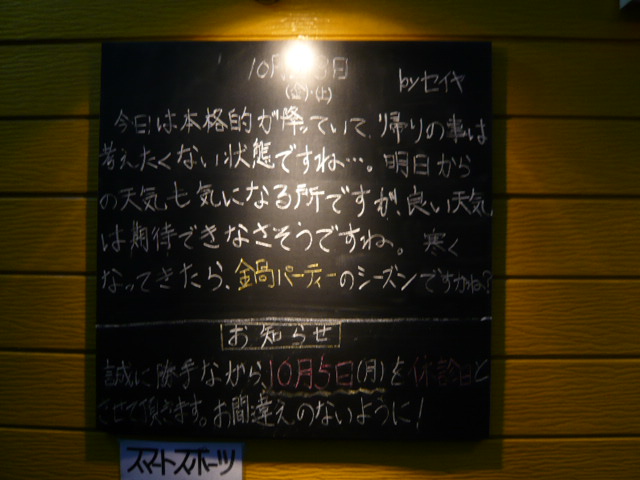 10月 3日 byセイヤ
(金)・(土)
今日は本格的が降っていて、帰りの事は
考えたくない状態ですね…。明日から
の天気も気になる所ですが、良い天気
は期待できなさそうですね。寒く
なってきたら、鍋パーティーのシーズンですかね?
お知らせ
誠に勝手ながら、10月5日(月)を休診日と
させて頂きます。お間違えのないように!
スマートスポーツ